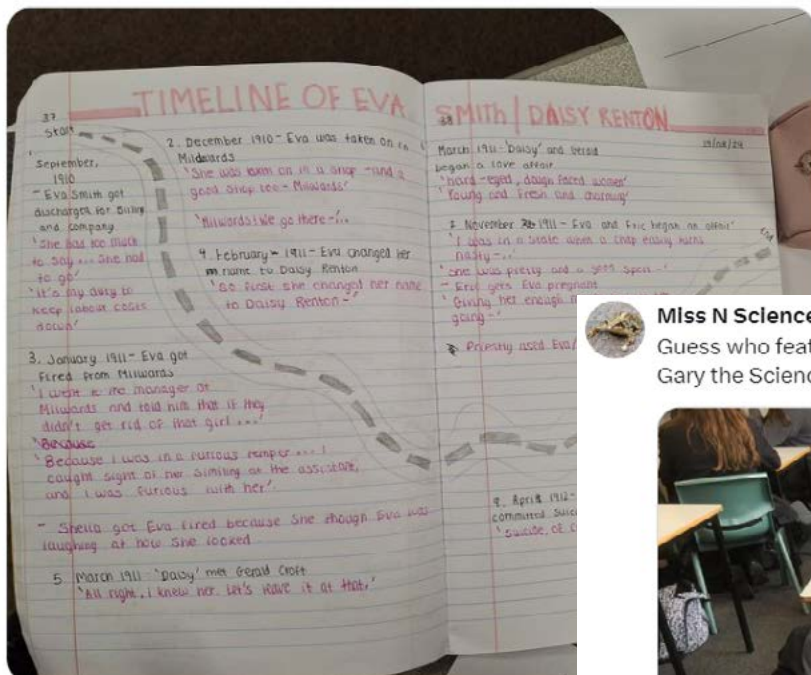 TIMELINE OF EVA SMITH / DAISY RENTON
37
Start
September,
1910
- Eva Smith got
discharged for Birling
and company
'She had too much
to say... She had
to go'
'it's my duty to
keep labour costs
down'
2. December 1910 - Eva was taken on in
Milwards
'She was taken on in a shop - and a
good shop too - Milwards'
'Milwards! We go there -'..
4. February - 1911 - Eva changed her
name to Daisy Renton
'So first she changed her name
to Daisy Renton -'
3. January 1911 - Eva got
fired from Milwards
'I went to the manager at
Milwards and told him that if they
didn't get rid of that girl ...'
Because
'Because I was in a furious temper... I
caught sight of her smiling at the assistant,
and I was furious with her'.
- Sheila got Eva fired because she though Eva was
laughing at how she looked
5. March 1911 - 'Daisy' met Gerald Croft
'All right, I knew her. Let's leave it at that.'
38
March 1911 - 'Daisy' and Gerald
began a love affair
'hard-eyed, dough faced women'
'Young and fresh and charming'
7. November 1911 - Eva and Eric began an affair'
'I was in a state when a chap easily turns
nasty -..'
'She was pretty and a good sport -'
- Eric gets Eva pregnant
'Giving her enough
going -'
Priestly used Eva/
9. April 1912 -
committed suici
'Suicide, of c
Miss N Science
Guess who feat
Gary the Scienc